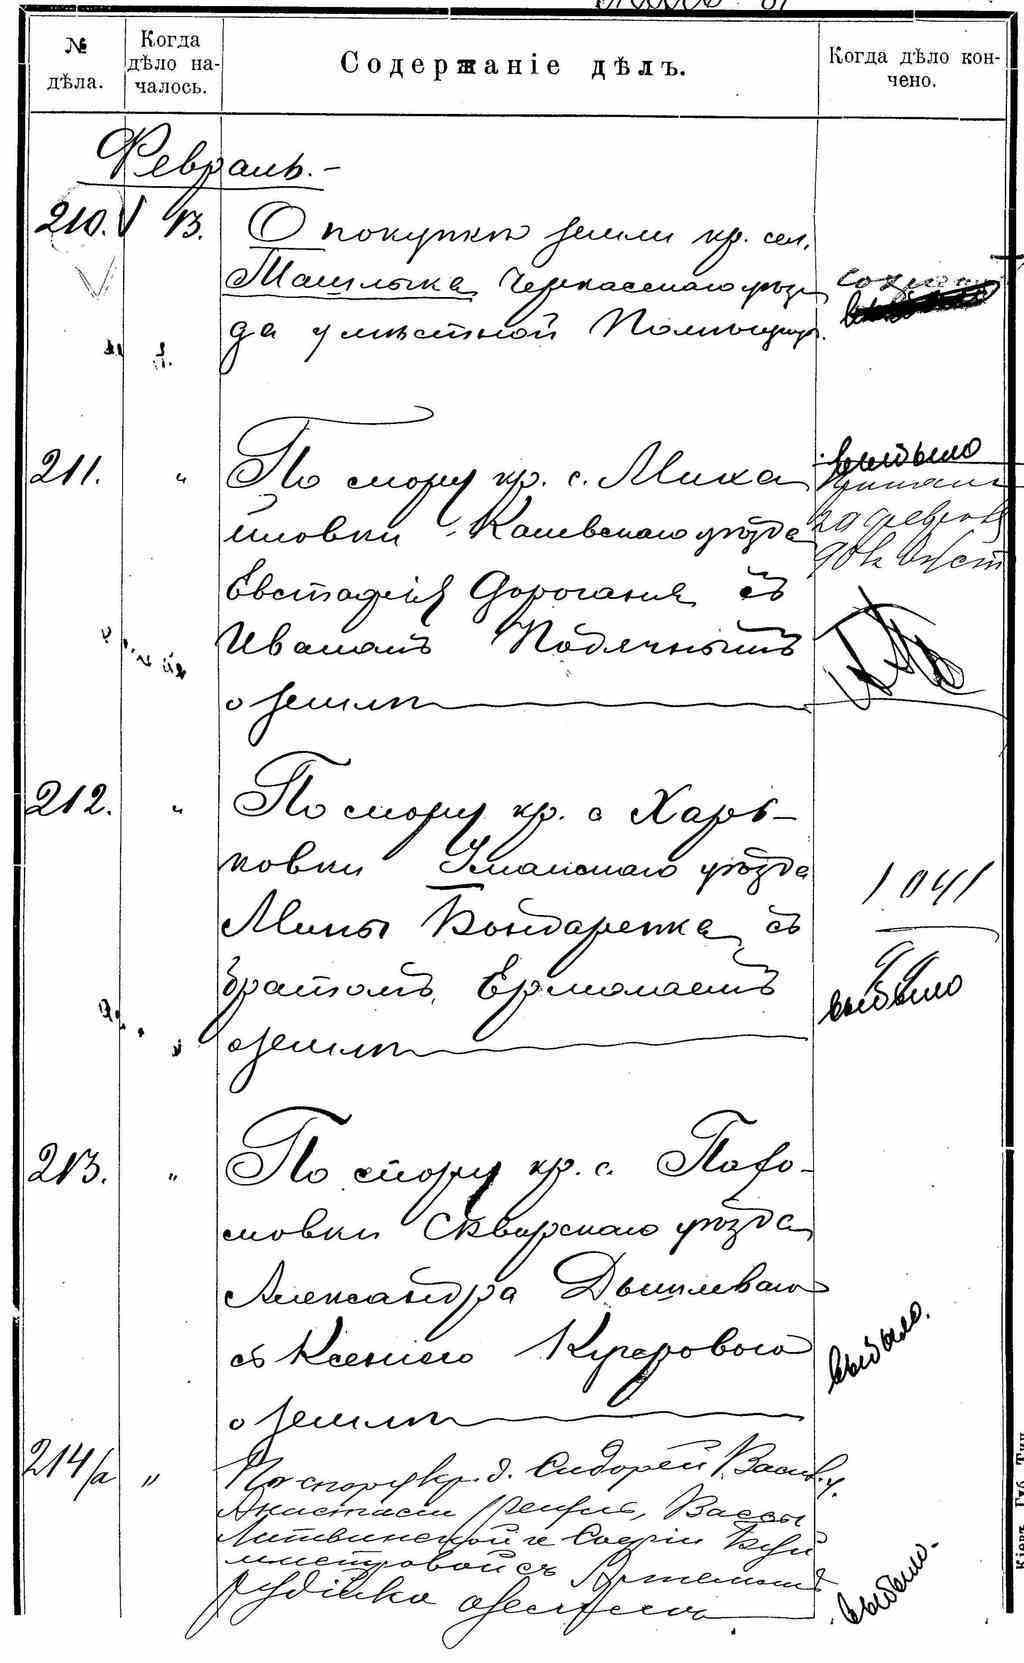 № дѣла.
Когда дѣло на-
чалось.
Содержаніе дѣлъ.
Когда дѣло кон-
чено.
Февраль.-
210. V 13. О покупкѣ земли кр. сел.
Ташлыка Черкасскаго уѣз
да у мѣстной Помѣщицы.
211. " По спору кр. с. Миха
йловки Каневскаго уѣзда
Евстафія Дороганя съ
Иваномъ Подлѣчнымъ
о землѣ
выбыло
20 февраля
212. " По спору кр. с Харь-
ковки Уманскаго уѣзда
Мины Бондаренка съ
братомъ Ермолаемъ
о землѣ
1041
99
выбыло
213. " По спору кр. с. Пато-
ловки Сквирскаго уѣзда
Александра Дышлеваго
съ Ксеніею Кучеровою
о землѣ
выбыло.
214/а " По спору кр. д. Сидорей
Анастасіи, Вассы
Литвинской и Софіи Буй
мистровой съ Артемомъ
Рудійко о землѣ
выбыло.
Кіевъ, Губ. Тип.